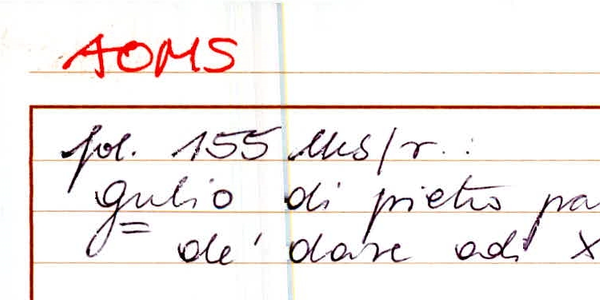 AOMS
fol. 155 Mss/r.:
gulio di pietro pa
de' dare adi X